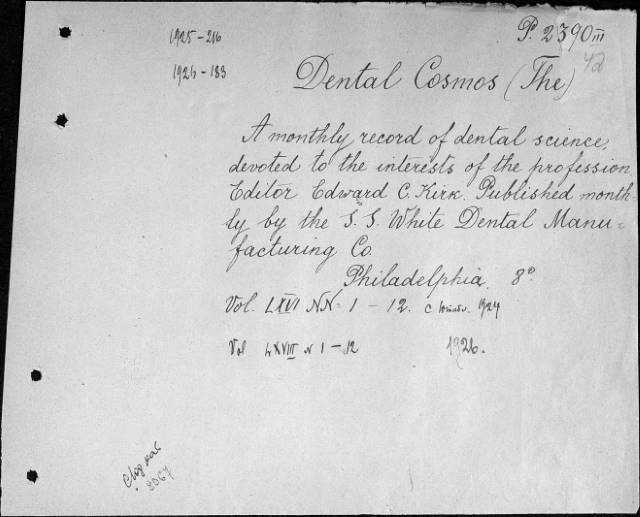 1925-216
P. 2390III
1926-183
42
Dental Cosmos (The)
A monthly record of dental science,
devoted to the interests of the profession.
Editor Edward C. Kirk. Published month-
ly by the S. S. White Dental Manu-
facturing Co.
Philadelphia. 8°
Vol. LXVI NN= 1-12. 1924
Vol LXVIII N 1-12 1926.
2067